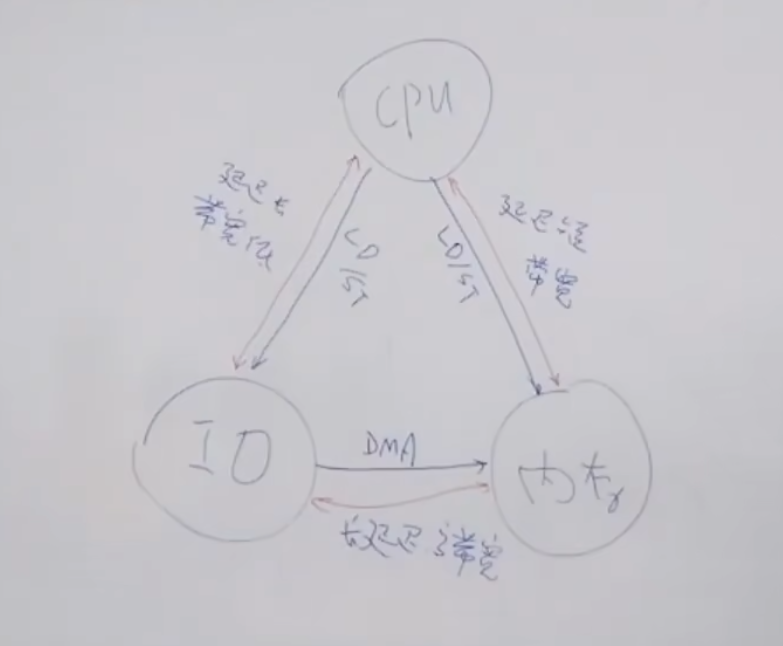 CPU
延迟长
带宽低
LD
/ST
LD/ST
延迟短
带宽
IO
DMA
内存
长延迟 高带宽